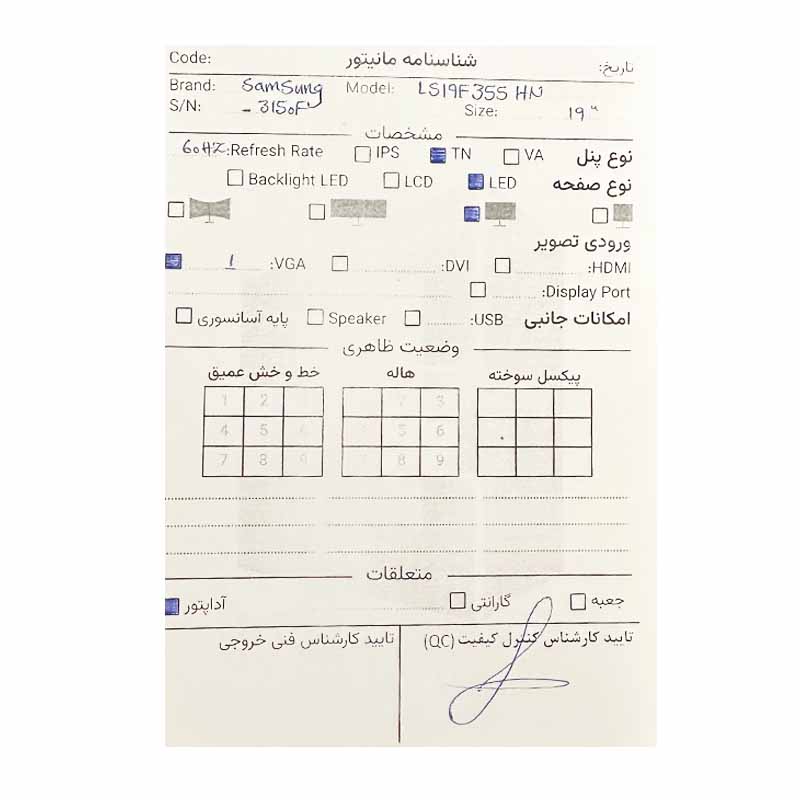 Code: شناسنامه مانیتور تاریخ:
Brand: SamSung Model: LS19F355 HN
S/N: - 3150F Size: 19"
مشخصات
نوع پنل VA TN IPS Refresh Rate: 60HZ
نوع صفحه LED LCD Backlight LED
ورودی تصویر
HDMI: DVI: VGA: 1
Display Port:
امکانات جانبی USB: Speaker پایه آسانسوری
وضعیت ظاهری
پیکسل سوخته هاله خط و خش عمیق
2 3 1 2
5 6 4 5 6
7 8 9 7 8 9
متعلقات
جعبه گارانتی آداپتور
تایید کارشناس کنترل کیفیت (QC) تایید کارشناس فنی خروجی